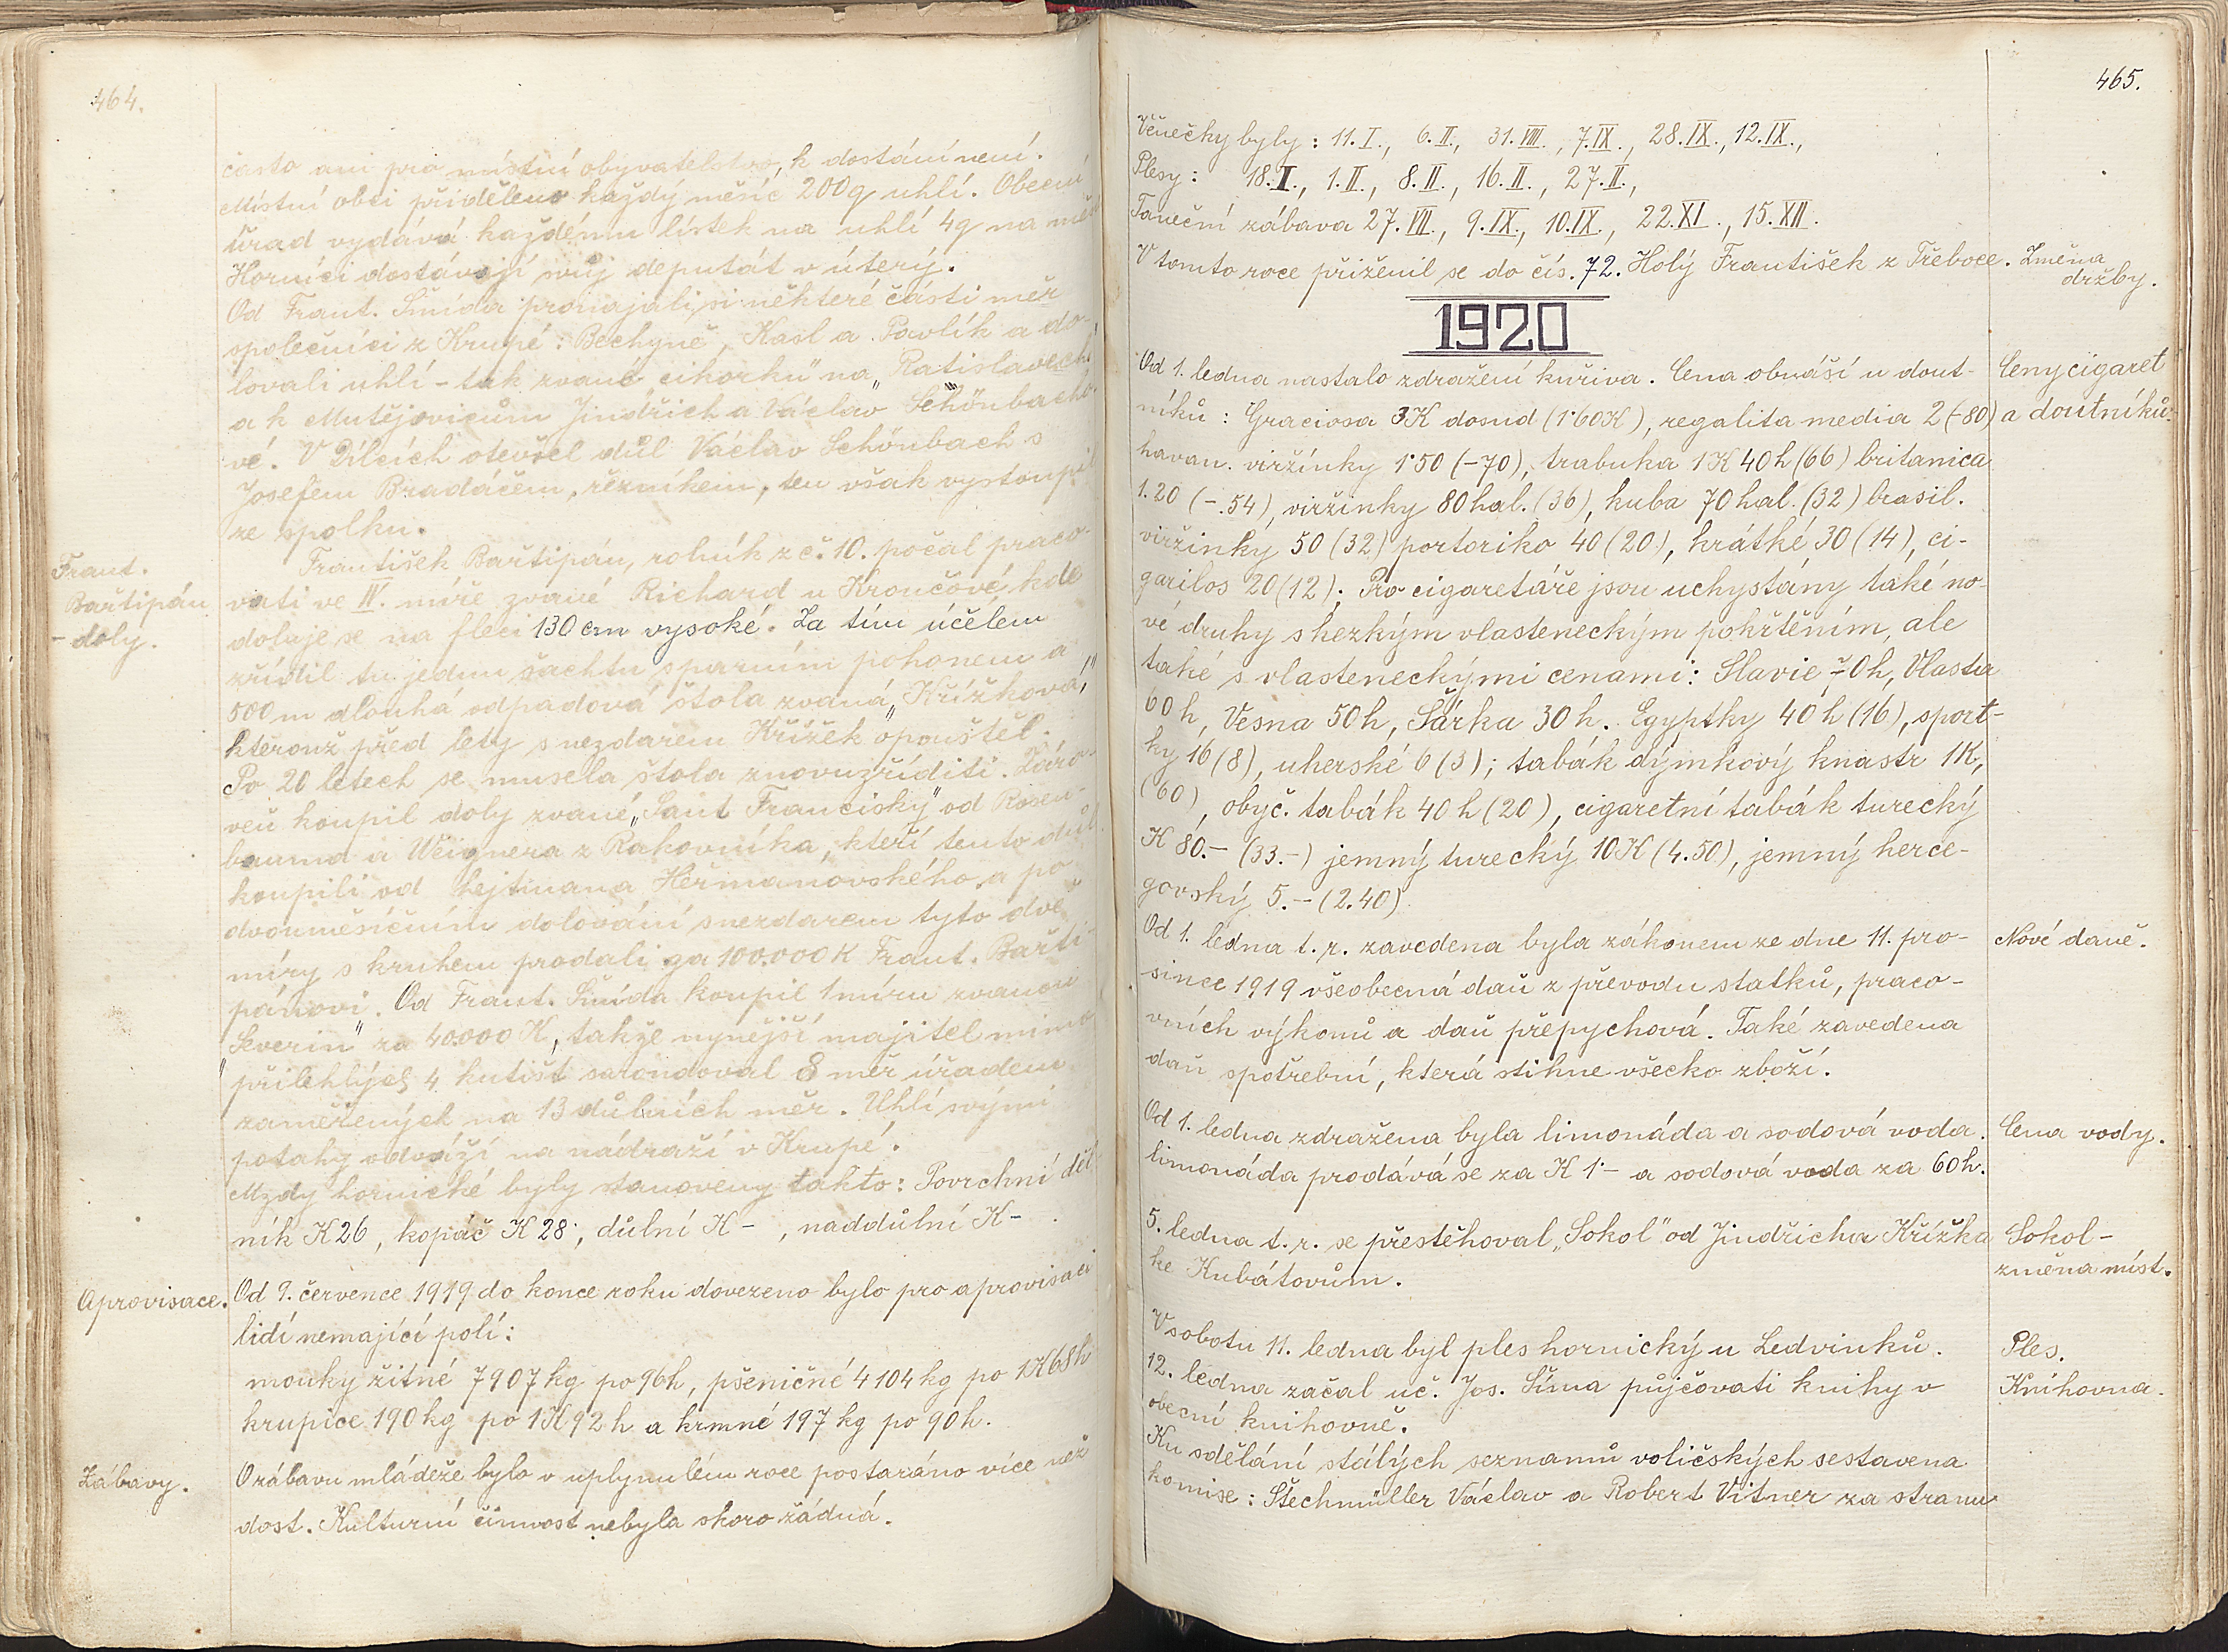 464.
často ani pro místní obyvatelstvo, k dostání není.
Místní obci přiděleno každý měsíc 200q uhlí. Obecní
úřad vydává každému lístek na uhlí 4q na měs
Horníci dostávají svůj deputát v úterý.
Od Frant. Šmída pronajali si některé části měr
společníci z Krupé: Bechyně, Kasl a Pavlík a do-
lovali uhlí - tak zvané cikorku" na „Ratislavech"
a k Mutějovicům Jindřich a Václav Schönbacho-
vé. V Dílcích otevřel důl Václav Schönbach s
Josefem Bradáčem, řezníkem, ten však vystoupil
ze spolku.
Frant.
Bařtipán
- doly.
František Bařtipán, rolník z č. 10. počal praco-
vati ve IV. míře zvané Richard u Kroučové, kde
doluje se na fleci 130 cm vysoké. Za tím účelem
zřídil tu jednu šachtu s parním pohonem a
500 m dlouhá odpadová štola zvaná „Křížkova",
kterouž před lety s nezdarem Křížek opouštěl.
Po 20 letech se musela štola znovuzříditi. Záro-
veň koupil doly zvané „Sant Francisky" od Rosen-
bauma a Weignera z Rakovníka, kteří tento důl
koupili od hejtmana Heřmanovského a po
dvouměsíčním dolování s nezdarem tyto dvě
míry s kruhem prodali za 100.000 K Frant. Bařti-
pánovi. Od Frant. Šmída koupil 1 míru zvanou
„Severin" za 40.000 K, takže nynější majitel mimo
přilehlých 4 kutišt zarondoval 8 měr úřadem
zaměřených na 13 důlních měr. Uhlí svými
potahy odváží na nádraží v Krupé.
Mzdy hornické byly stanoveny takto: Povrchní děl-
ník K 26, kopáč K 28, důlní K - , naddůlní K - .
Aprovisace.
Od 9. července 1919 do konce roku dovezeno bylo pro aprovisaci
lidí nemající polí:
mouky žitné 7907 kg po 96 h, pšeničné 4104 kg po 1K 68 h
krupice 190 kg po 1K 92 h a krmné 197 kg po 90 h.
Zábavy.
O zábavu mládeže bylo v uplynulém roce postaráno více než
dost. Kulturní činnost nebyla skoro žádná.
465.
Věnečky byly: 11. I., 6. II., 31. VIII., 7. IX., 28. IX., 12. IX.,
Plesy: 18. I., 1. II., 8. II., 16. II., 27. II.,
Taneční zábava 27. VII., 9. IX., 10. IX., 22. XI., 15. XII.
V tomto roce přiženil se do čís. 72. Holý František z Třeboce.
Změna
držby.
1920
Od 1. ledna nastalo zdražení kuřiva. Cena obnáší u dout-
níků: Graciosa 3K dosud (1·60K), regalita media 2 (-80)
havan. viržinky 1·50 (-70), trabuka 1K 40h (66) britanica
1.20 (-.54), viržinky 80 hal. (36), kuba 70 hal. (32) brasil.
viržinky 50 (32) portoriko 40 (20), krátké 30 (14), ci-
garilos 20 (12). Pro cigaretáře jsou uchystány také no-
vé druhy s hezkým vlasteneckým pokřtěním, ale
také s vlasteneckými cenami: Slavie 70h, Vlasta
60 h, Vesna 50h, Šárka 30 h. Egyptky 40 h (16), sport-
ky 16 (8), uherské 6 (3); tabák dýmkový knastr 1K,
(60), obyč. tabák 40 h (20), cigaretní tabák turecký
K 80.- (33.-) jemný turecký 10K (4.50), jemný herce-
govský 5.- (2.40)
Ceny cigaret
a doutníků.
Od 1. ledna t. r. zavedena byla zákonem ze dne 11. pro-
since 1919 všeobecná daň z převodu statků, praco-
vních výkonů a daň přepychová. Také zavedena
daň spotřební, která stihne všecko zboží.
Nové daně.
Od 1. ledna zdražena byla limonáda a sodová voda.
limonáda prodává se za K 1·- a sodová voda za 60h.
Cena vody.
5. ledna t. r. se přestěhoval „Sokol" od Jindřicha Křížka
ke Kubátovům.
Sokol -
změna míst.
V sobotu 11. ledna byl ples hornický u Ledvinků.
Ples.
12. ledna začal uč. Jos. Šíma půjčovati knihy v
obecní knihovně.
Knihovna.
Ku sdělání stálých seznamů voličských sestavena
komise: Štechmüller Václav a Robert Vitner za stranu